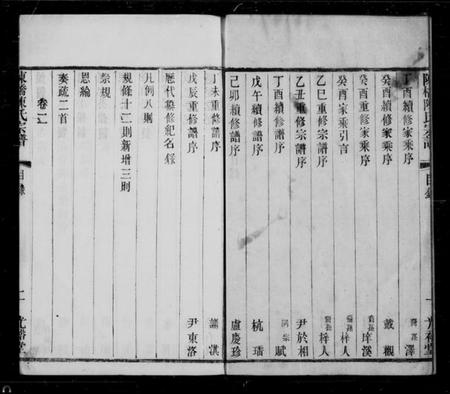 丁酉續修家乘序 裔孫澤
癸酉續修家乘序 戴觀
癸酉重修家乘序 裔孫庠溪
癸酉家乘引言 裔孫梓人
乙巳重修宗譜序 裔孫梓人
乙丑重修宗譜序 尹於相
丁酉續修譜序 賦
戊午續修譜序 杭璠
己卯續修譜序 盧慶珍
丁未重修譜序 淇
戊辰重修譜序 尹東洛
歷代襄修紀名錄
凡例八則
規條十二則新增三則
祭規
恩綸
奏疏二首
卷二
目錄
二